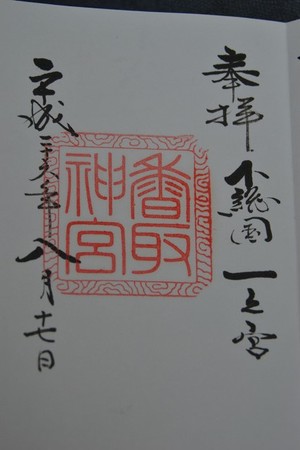 奉拝
下総国
一之宮
香取
神宮
平成 年八月十七日